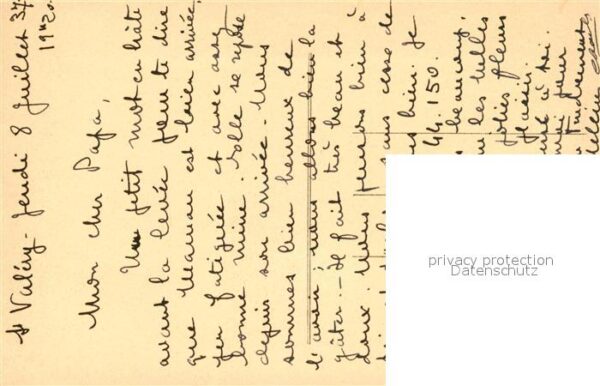 St Valéry - Jeudi 8 Juillet 37
19h20
Mon cher Papa,
Un petit mot en hâte
avant la levée pour te dire
que Maman est bien arrivée,
peu fatiguée et avec assez
bonne mine. Elle se repose
depuis son arrivée. Nous
sommes bien heureux de
l'avoir, nous allons bien la
gâter. - Il fait très beau et
doux. Nous pensons bien à
sans cesse de
bien. Je
44.150.
beaucoup,
les belles
jolies fleurs
plaisir.
à toi.
pour
Tendrement
privacy protection
Datenschutz